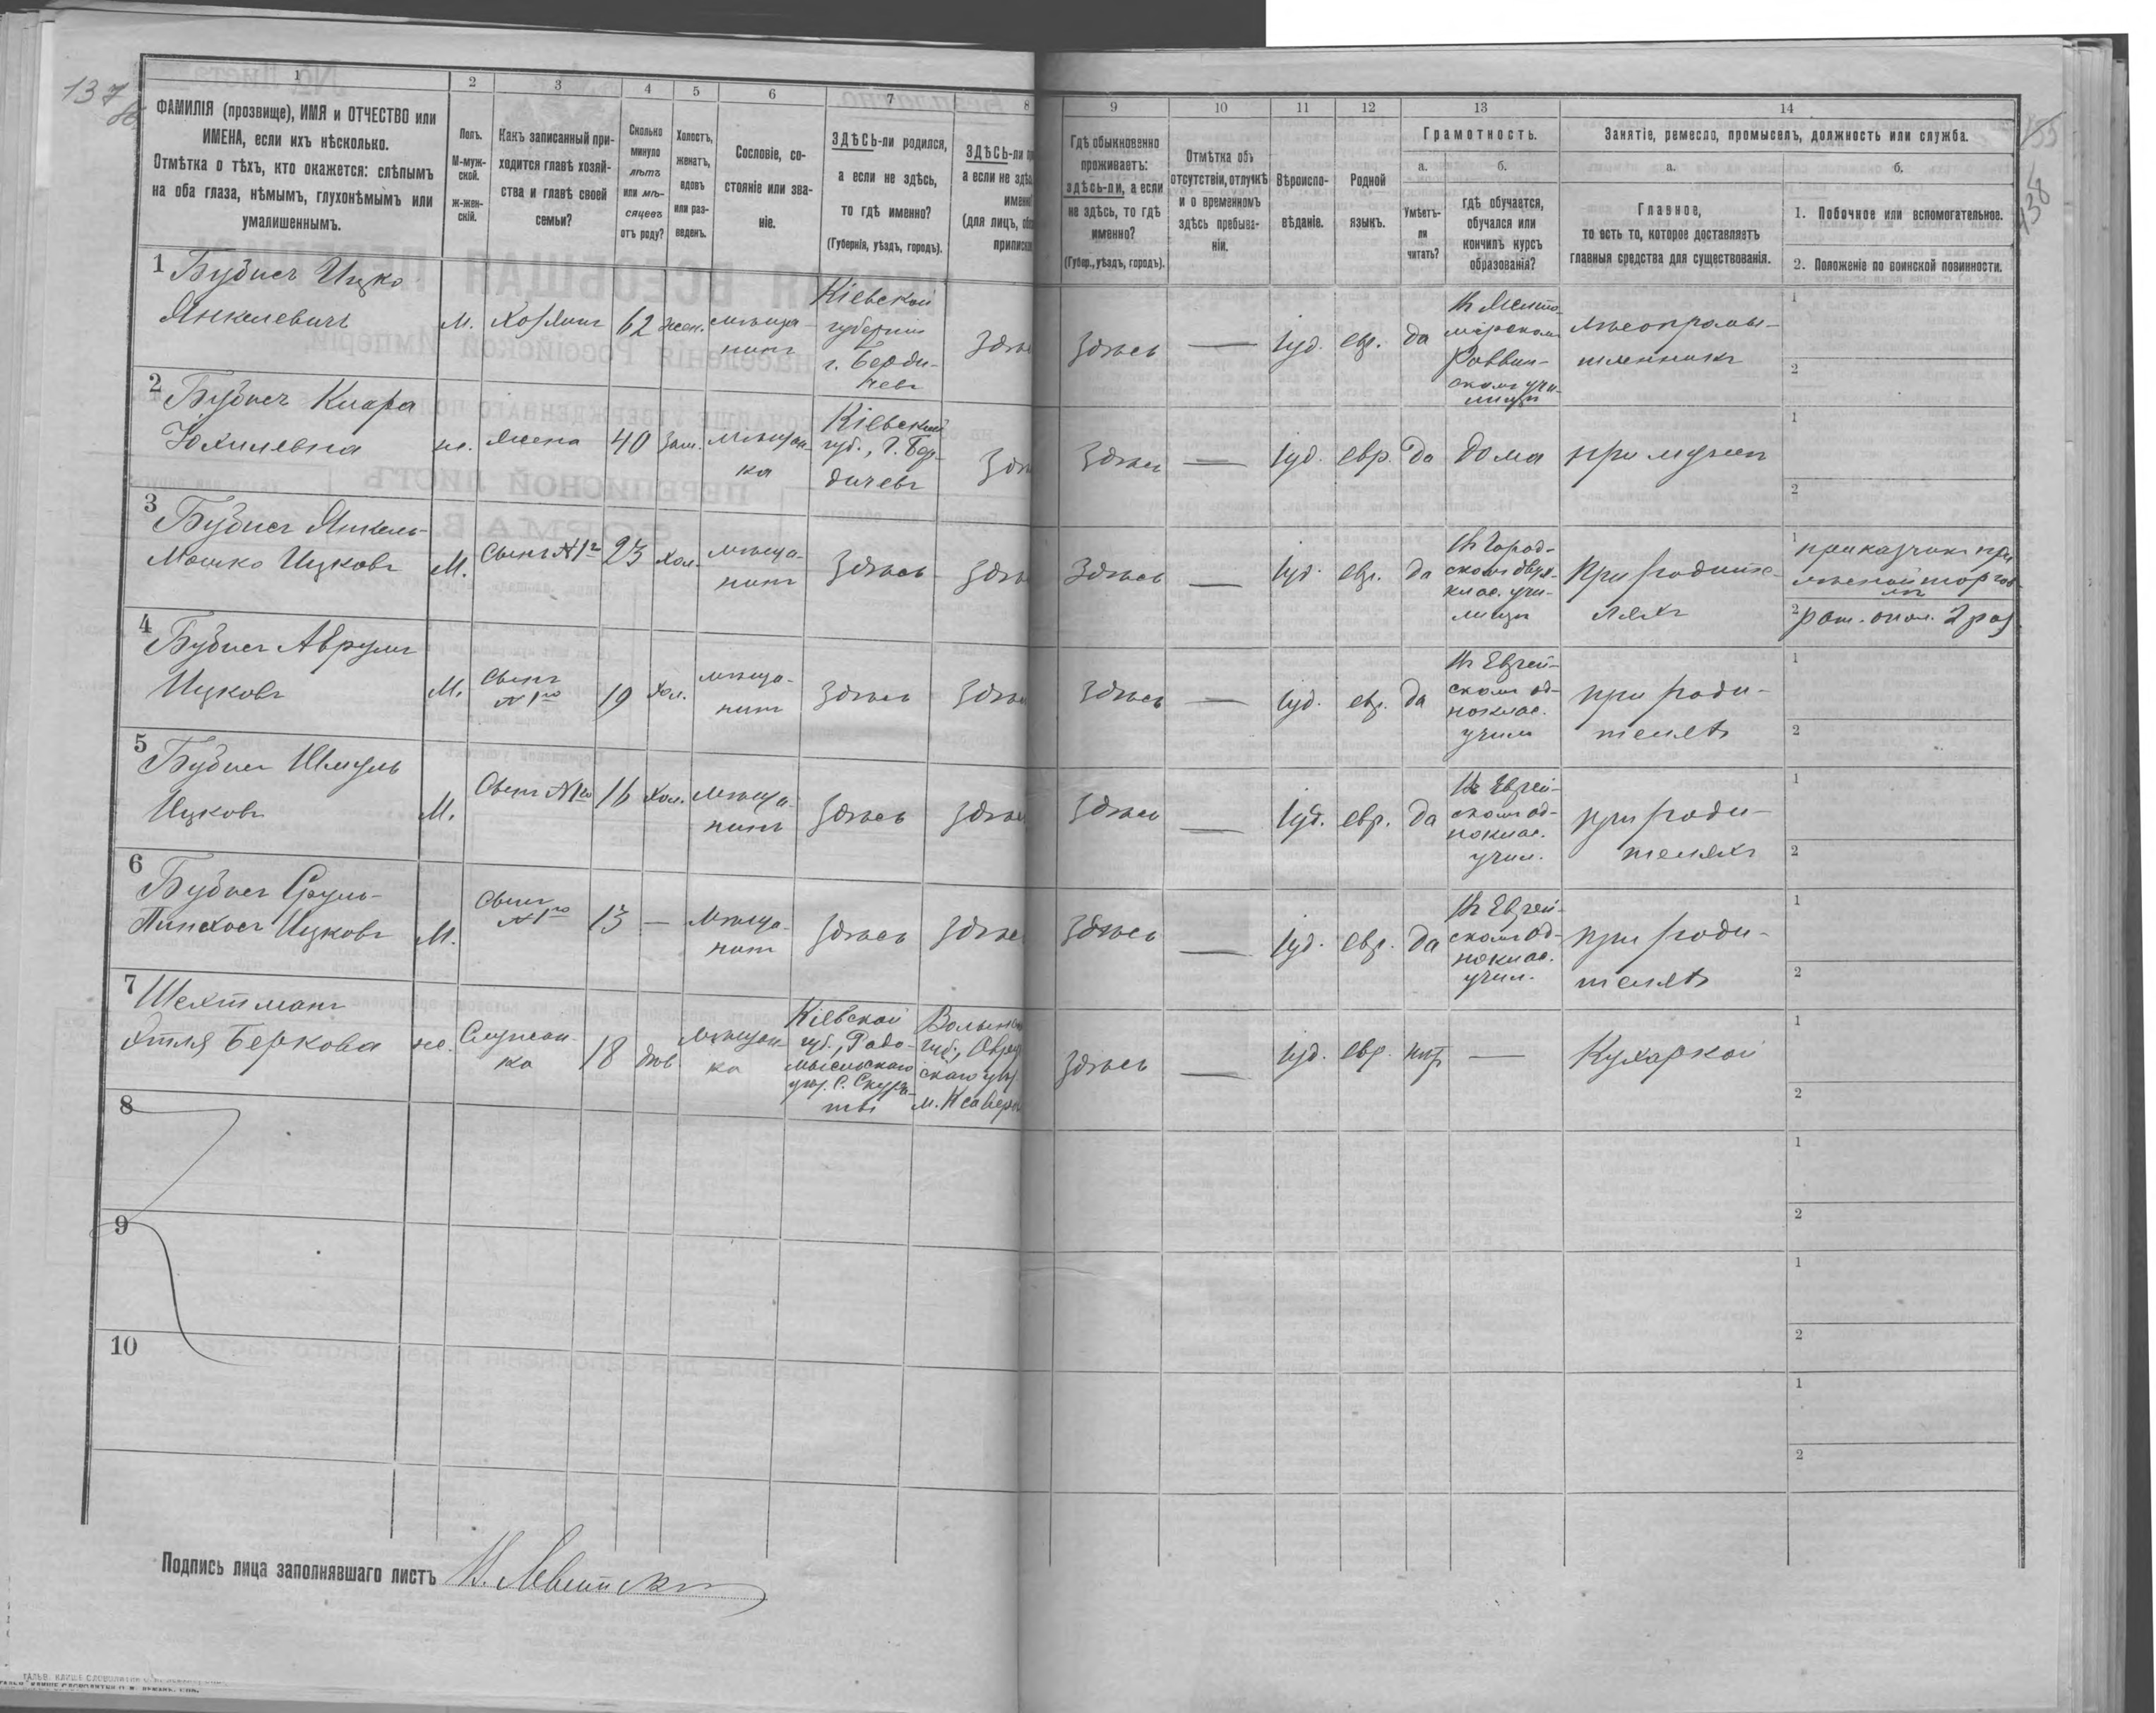 137
1
2
3
4
5
6
7
8
9
10
11
12
13
14
ФАМИЛІЯ (прозвище), ИМЯ и ОТЧЕСТВО или
ИМЕНА, если ихъ нѣсколько.
Отмѣтка о тѣхъ, кто окажется: слѣпымъ
на оба глаза, нѣмымъ, глухонѣмымъ или
умалишеннымъ.
Полъ.
М-муж-
ской.
Ж-жен-
скій.
Какъ записанный при-
ходится главѣ хозяй-
ства и главѣ своей
семьи?
Сколько
минуло
лѣтъ
или мѣ-
сяцевъ
отъ роду?
Холостъ,
женатъ,
вдовъ
или раз-
веденъ.
Сословіе, со-
стояніе или зва-
ніе.
ЗДѢСЬ-ли родился,
а если не здѣсь,
то гдѣ именно?
(Губернія, уѣздъ, городъ).
ЗДѢСЬ-ли
а если не здѣ
именно
(для лицъ,
приписки
Гдѣ обыкновенно
проживаетъ:
здѣсь-ли, а если
не здѣсь, то гдѣ
именно?
(Губер., уѣздъ, городъ).
Отмѣтка объ
отсутствіи, отлучкѣ
и о временномъ
здѣсь пребыва-
ніи.
Вѣроиспо-
вѣданіе.
Родной
языкъ.
Грамотность.
а.
Умѣетъ-
ли
читать?
б.
гдѣ обучается,
обучался или
кончилъ курсъ
образованія?
Занятіе, ремесло, промыселъ, должность или служба.
а.
Главное,
то есть то, которое доставляетъ
главныя средства для существованія.
б.
1. Побочное или вспомогательное.
2. Положеніе по воинской повинности.
138
1
Буднег Ицко
Янкелевичъ
М.
Хозяинъ
62
жен.
мѣща-
нинъ
Кіевской
губерніи
г. Берди-
чевъ
Здѣсь
Здѣсь
—
Іуд.
евр.
да
Въ Жито-
мірскомъ
Раввин-
скомъ учи-
лищѣ
мясопромы-
шленникъ
1
2
2
Буднег Клара
Юхилевна
ж.
жена
40
зам.
мѣщан-
ка
Кіевской
губ., г. Бер-
дичевъ
Здѣсь
Здѣсь
—
Іуд.
евр.
да
дома
при мужѣ
1
2
3
Буднег Янкель-
Мошко Ицковъ
М.
Сынъ №1го
23
хол.
мѣща-
нинъ
Здѣсь
Здѣсь
Здѣсь
—
Іуд.
евр.
да
Въ город-
скомъ двух-
клас. учи-
лищѣ
При родите-
ляхъ
1
приказчикъ при
мясной торгов-
лѣ
2
рат. опол. 2 раз
4
Буднег Аврумъ
Ицковъ
М.
Сынъ
№1го
19
хол.
мѣща-
нинъ
Здѣсь
Здѣсь
Здѣсь
—
Іуд.
евр.
да
Въ Еврей-
скомъ од-
ноклас.
учил.
при роди-
теляхъ
1
2
5
Буднег Шмуль
Ицковъ
М.
Сынъ №1го
16
хол.
мѣща-
нинъ
Здѣсь
Здѣсь
Здѣсь
—
Іуд.
евр.
да
Въ Еврей-
скомъ од-
ноклас.
учил.
при роди-
теляхъ
1
2
6
Буднег Сруль-
Пинхосъ Ицковъ
М.
Сынъ
№1го
13
—
мѣща-
нинъ
Здѣсь
Здѣсь
Здѣсь
—
Іуд.
евр.
да
Въ Еврей-
скомъ од-
ноклас.
учил.
при роди-
теляхъ
1
2
7
Шехтманъ
Этля Беркова
ж.
Служан-
ка
18
дѣв.
мѣщан-
ка
Кіевской
губ., Радо-
мысльскаго
уѣз. с.
Волын
губ., Овруч
скаго уѣз
м. Ксаверо
Здѣсь
—
Іуд.
евр.
нѣт
—
Кухаркой
1
2
8
1
2
9
1
2
10
1
2
Подпись лица заполнявшаго листъ